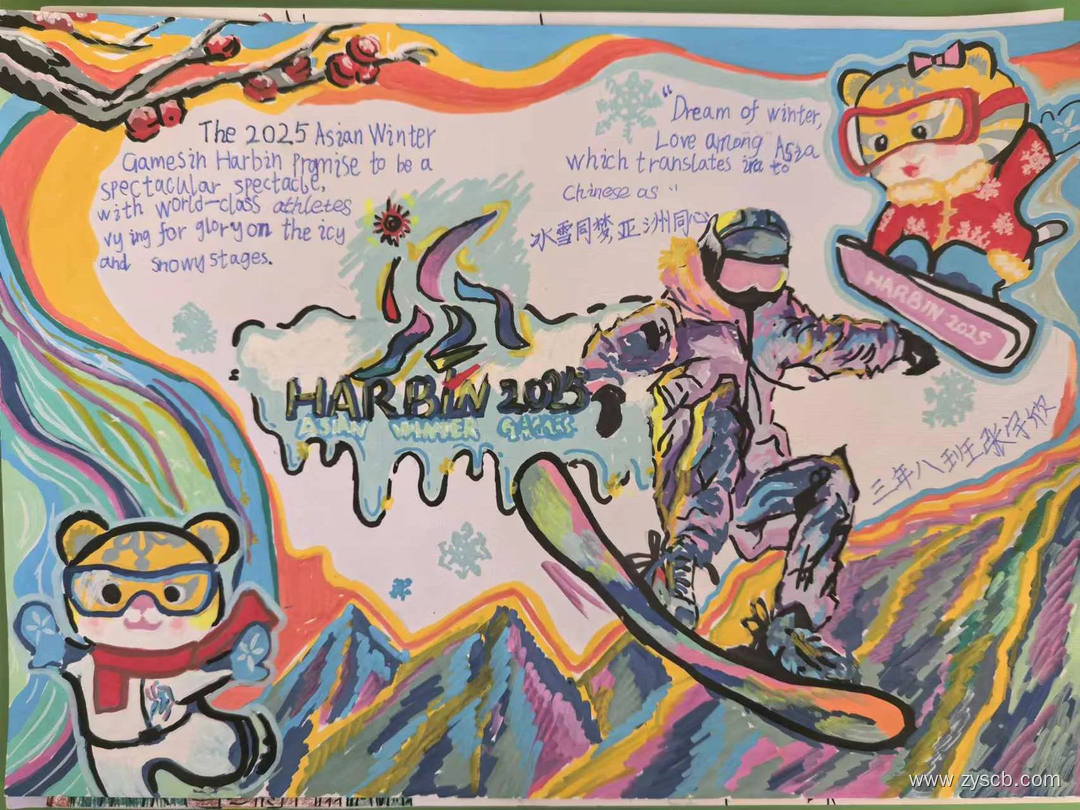 The 2025 Asian Winter
Gamesin Harbin promise to be a
spectacular spectacle,
with world-class athletes
vying for glory on the icy
and snowy stages.
"Dream of winter,
Love among Asia
which translates to
Chinese as "
冰雪同梦,亚洲同心
HARBIN 2025
HARBIN 2025
ASIAN WINTER GAMES
三年八班张宇欣
www.zyscb.com